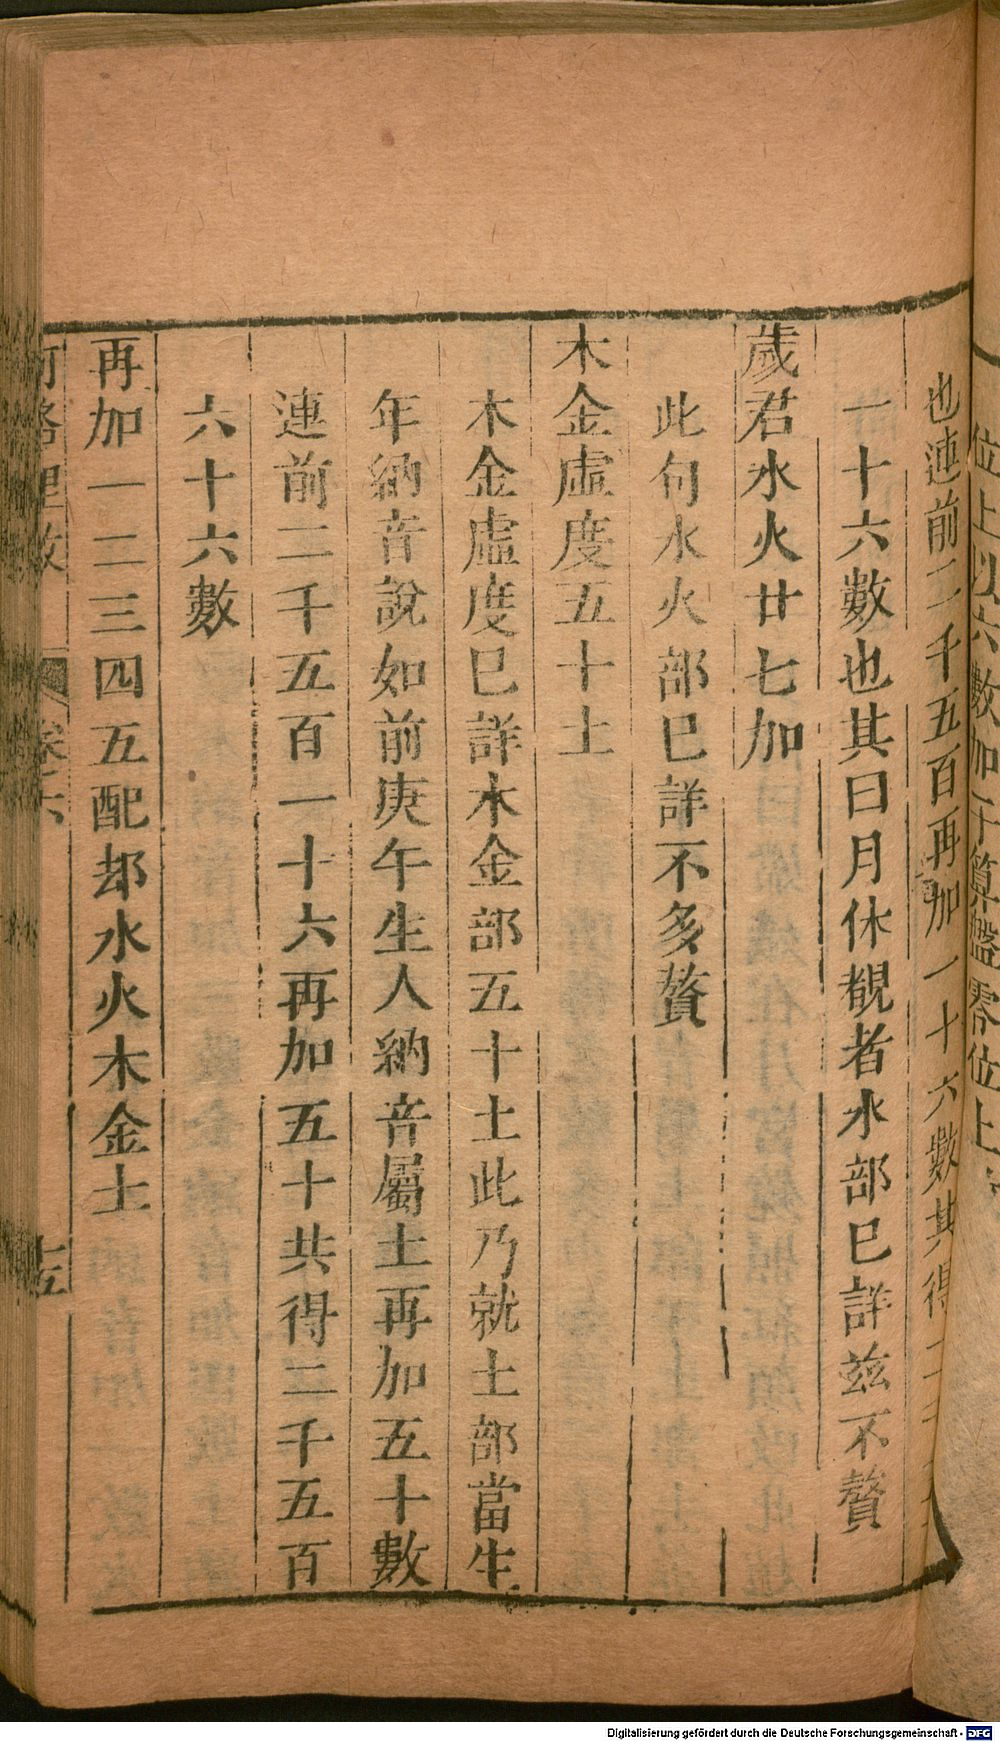 位上以六數加于算盤零位上
也連前二千五百再加一十六數共得二千
一十六數也其曰月休覩者水部已詳茲不贅
歲君水火廿七加
此句水火部已詳不多贅
木金虛度五十土
木金虛度已詳木金部五十土此乃就土部當生
年納音說如前庚午生人納音屬土再加五十數
連前二千五百一十六再加五十共得二千五百
六十六數
再加一二三四五配却水火木金土
河洛理數 卷六 十五
Digitalisierung gefördert durch die Deutsche Forschungsgemeinschaft - DFG